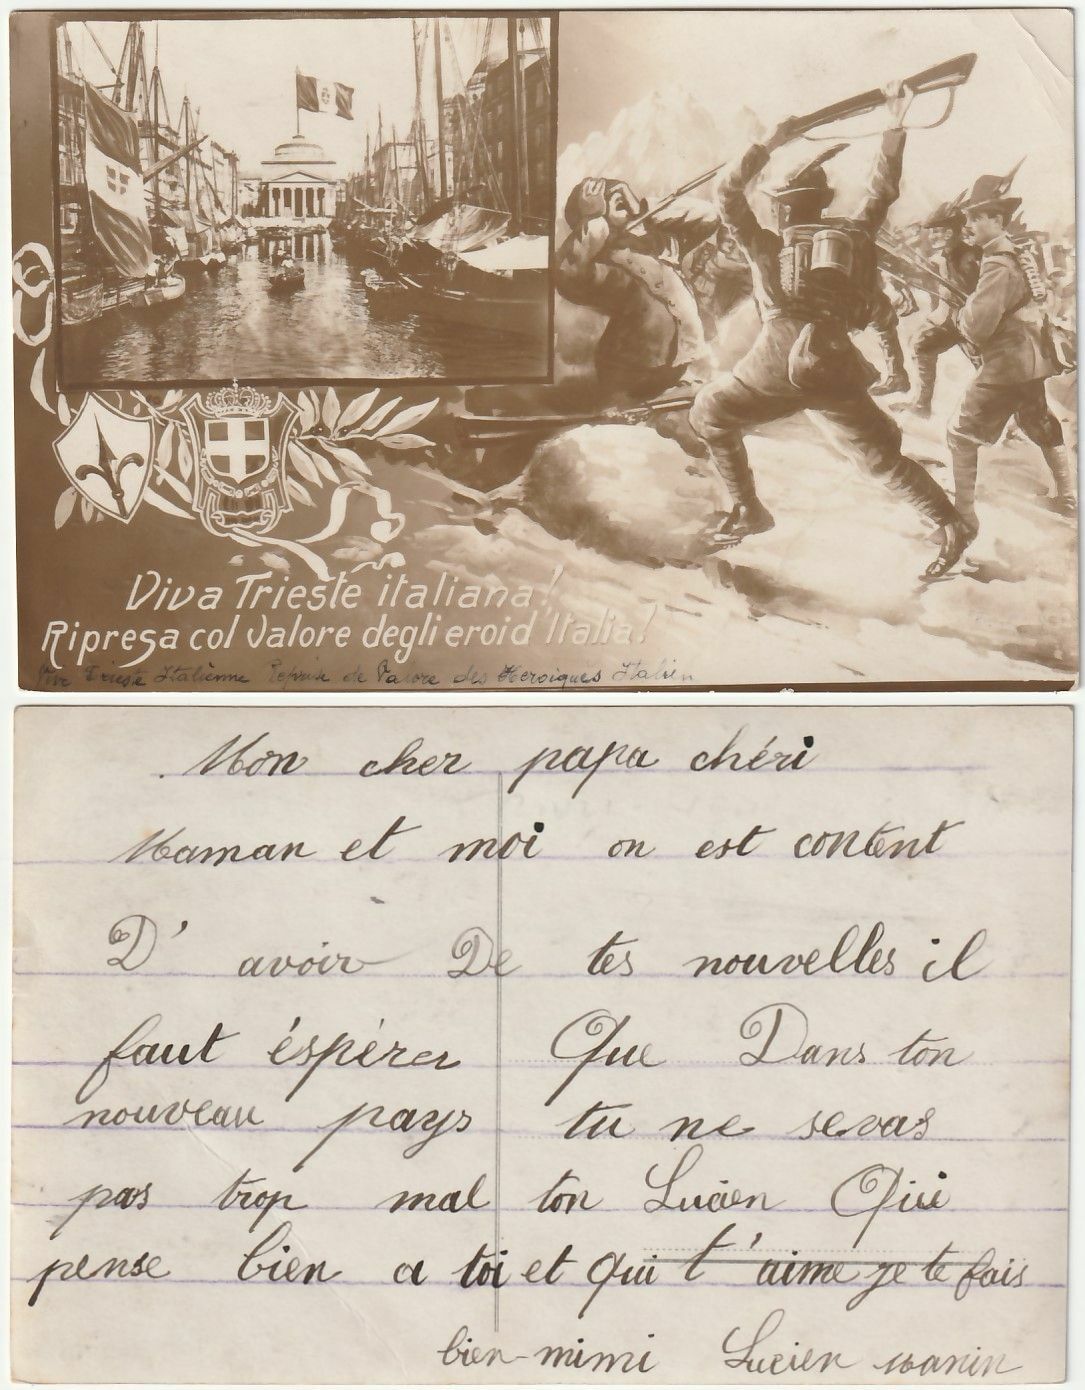 Viva Trieste italiana!
Ripresa col Valore degli eroi d'Italia!
Vive Trieste Italienne Reprise de Valore des Heroiques Italien
. Mon cher papa chéri
Maman et moi on est content
D' avoir De tes nouvelles il
faut éspérer Que Dans ton
nouveau pays tu ne seras
pas trop mal ton Lucien Qui
pense bien a toi et Qui t'aime je te fais
bien mimi Lucien